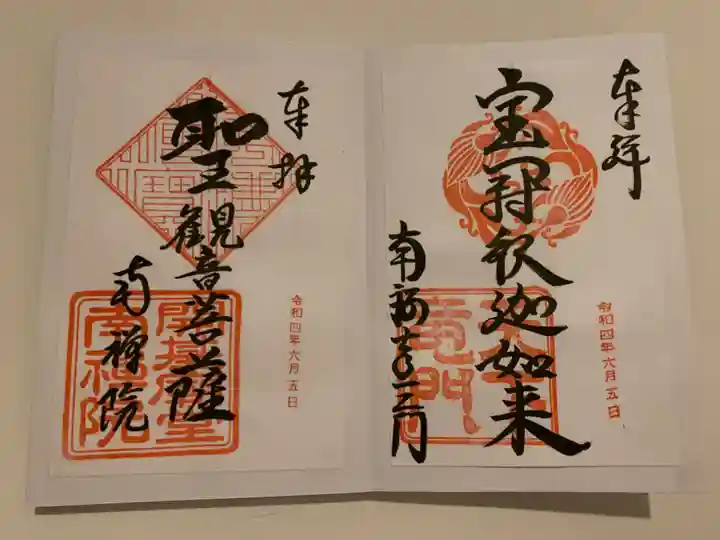 奉拝
宝冠釈迦如来
南禅寺三門
令和四年六月五日
竜門
奉拝
聖王観音菩薩
南禅院
令和四年六月五日
南禅院